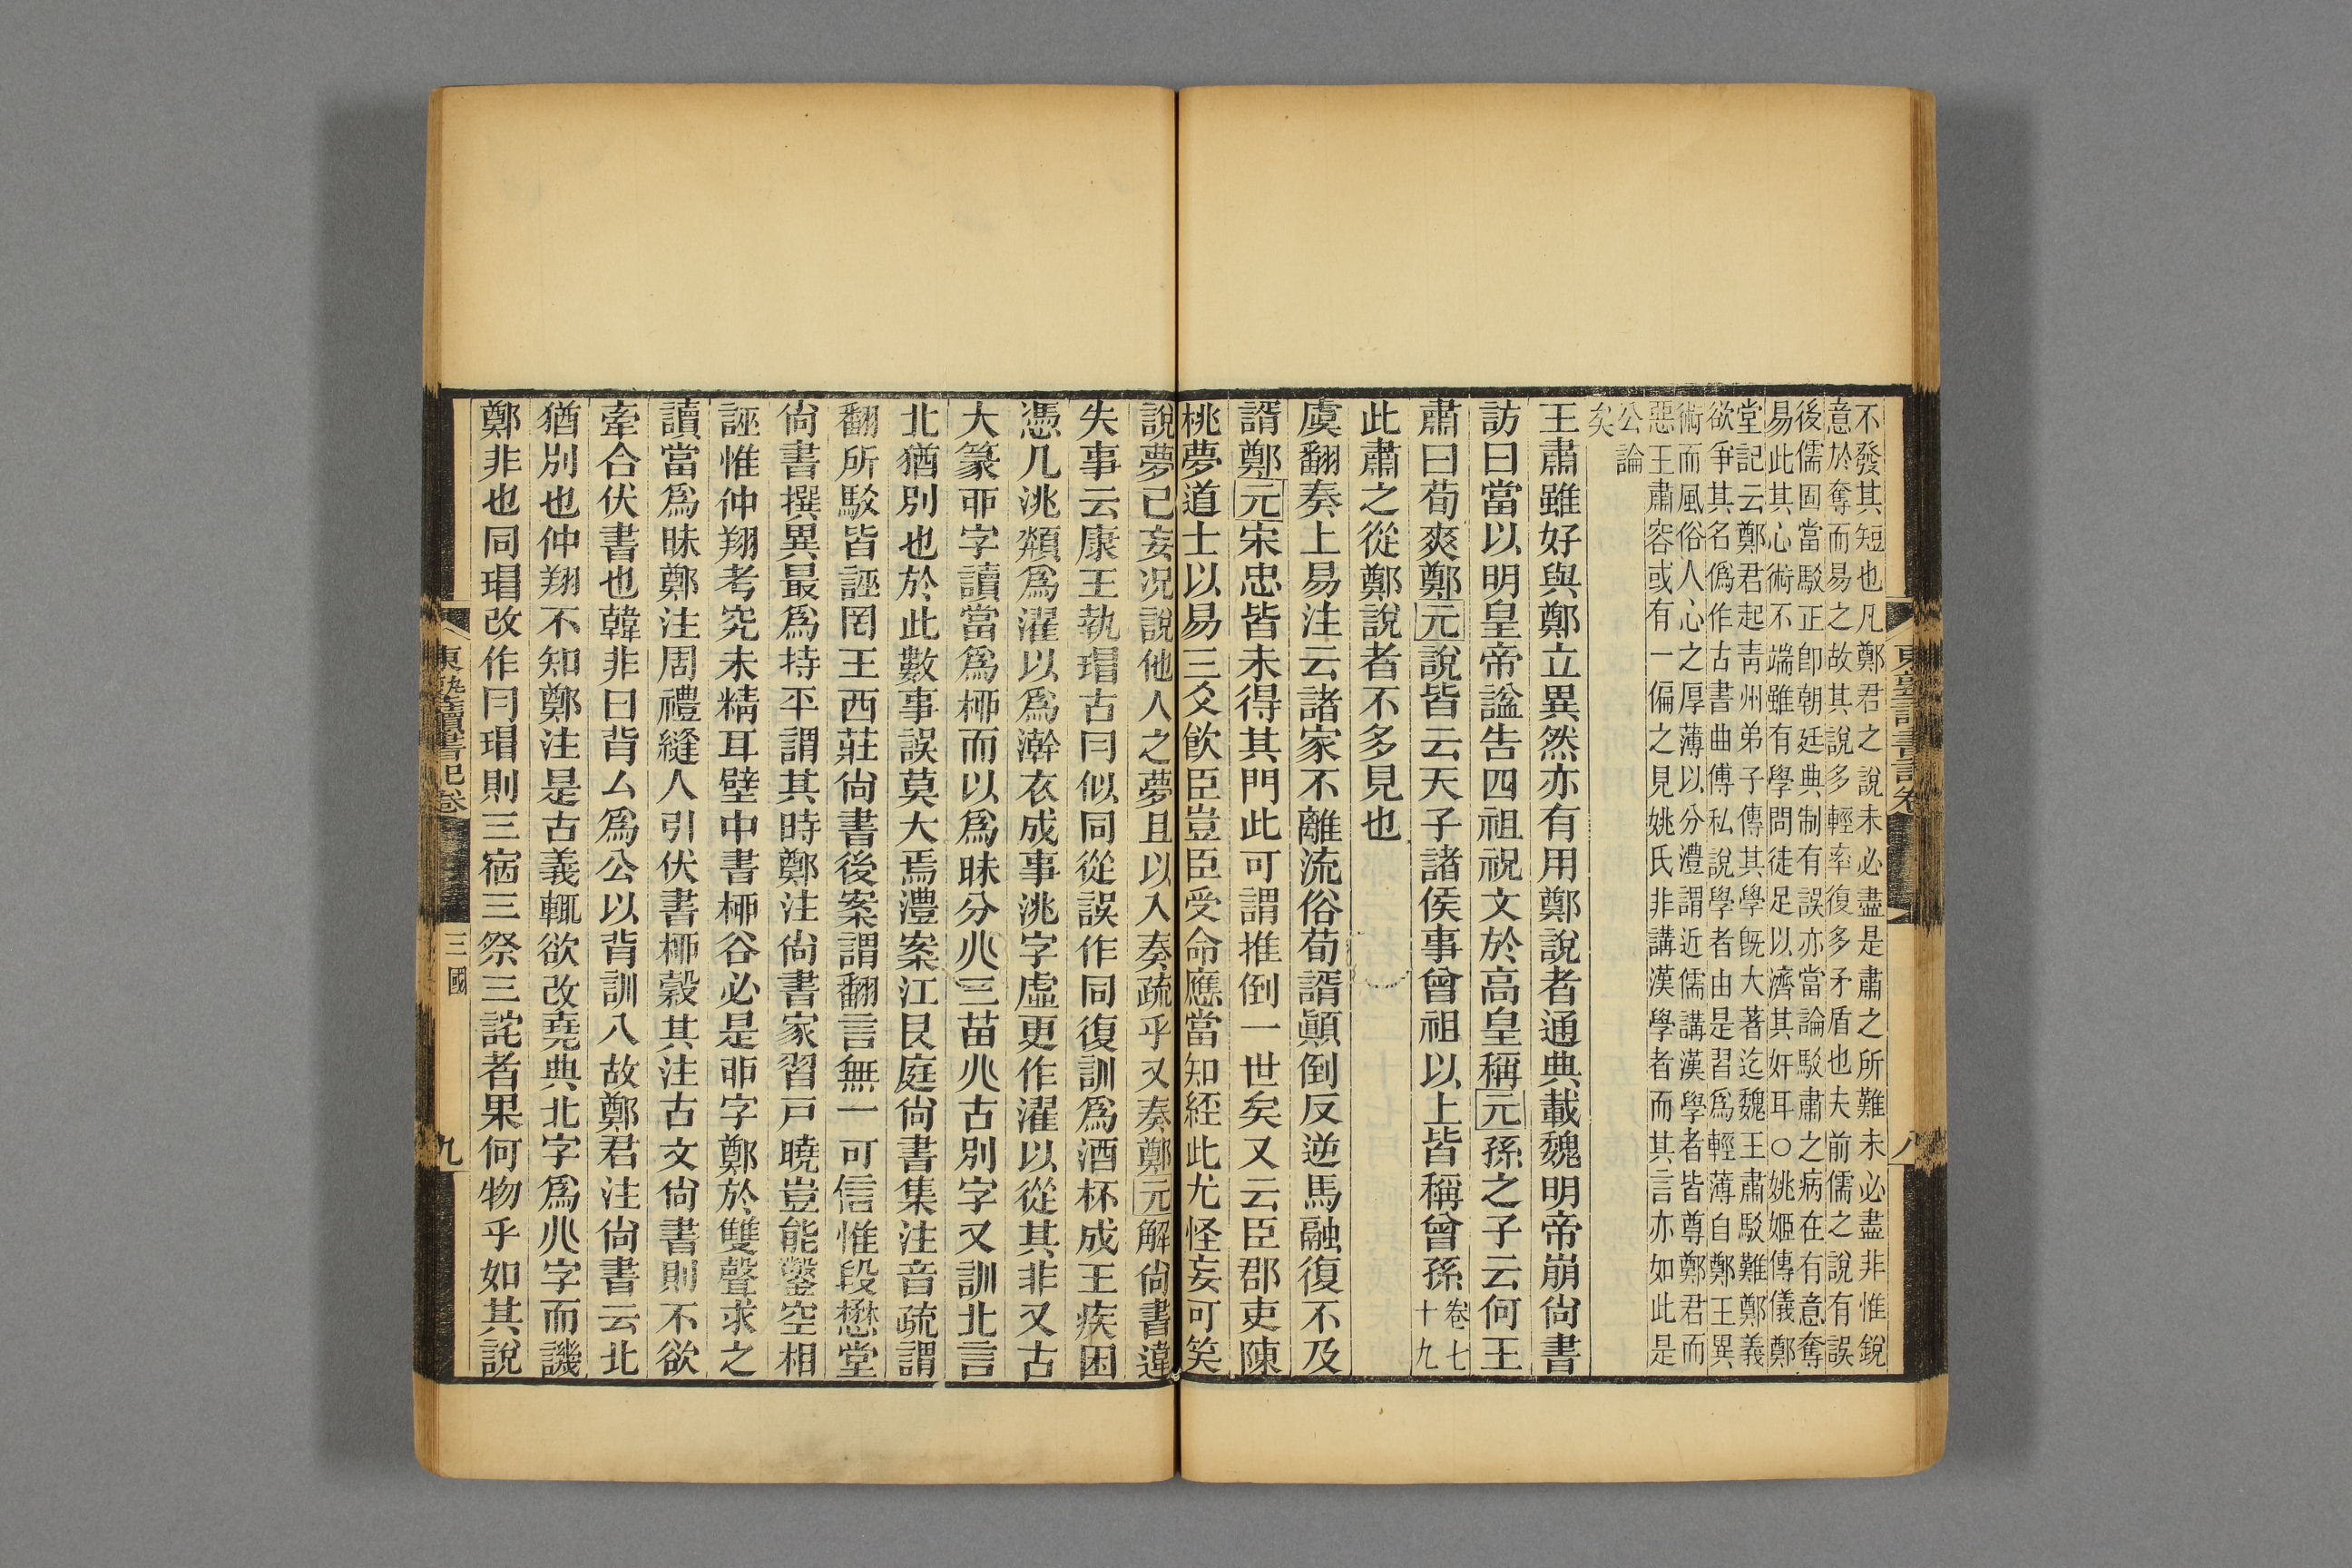 不發其短也凡鄭君之說未必盡是肅之所難未必盡非惟銳
意於奪而易之故其說多輕率復多矛盾也夫前儒之說有誤
後儒固當駁正卽朝廷典制有誤亦當論駁肅之病在有意奪
易此其心術不端雖有學問徒足以濟其奸耳○姚姬傳儀鄭
堂記云鄭君起靑州弟子傳其學旣大著迄魏王肅駁難鄭義
欲爭其名僞作古書曲傅私說學者由是習爲輕薄自鄭王異
術而風俗人心之厚薄以分澧謂近儒講漢學者皆尊鄭君而
惡王肅容或有一偏之見姚氏非講漢學者而其言亦如此是
公論
矣
王肅雖好與鄭立異然亦有用鄭說者通典載魏明帝崩尙書
訪曰當以明皇帝諡告四祖祝文於高皇稱元孫之子云何王
肅曰荀爽鄭元說皆云天子諸侯事曾祖以上皆稱曾孫卷七十九
此肅之從鄭說者不多見也
虞翻奏上易注云諸家不離流俗荀諝顚倒反逆馬融復不及
諝鄭元宋忠皆未得其門此可謂推倒一世矣又云臣郡吏陳
桃夢道士以易三爻飮臣豈臣受命應當知經此尤怪妄可笑
說夢已妄况說他人之夢且以入奏疏乎又奏鄭元解尙書違
失事云康王執瑁古冃似同從誤作同復訓爲酒杯成王疾困
憑几洮頮爲濯以爲澣衣成事洮字虛更作濯以從其非又古
大篆丣字讀當爲桺而以爲昧分北三苗北古別字又訓北言
北猶別也於此數事誤莫大焉澧案江艮庭尙書集注音疏謂
翻所駁皆誣罔王西莊尙書後案謂翻言無一可信惟段懋堂
尙書撰異最爲持平謂其時鄭注尙書家習戸曉豈能鑿空相
誣惟仲翔考究未精耳壁中書桺谷必是丣字鄭於雙聲求之
讀當爲昧鄭注周禮縫人引伏書桺穀其注古文尙書則不欲
牽合伏書也韓非曰背厶爲公以背訓八故鄭君注尙書云北
猶別也仲翔不知鄭注是古義輒欲改堯典北字爲𠔁字而譏
鄭非也同瑁改作冃瑁則三宿三祭三詫者果何物乎如其說
東塾讀書記卷
八
東塾讀書記卷
三國
九